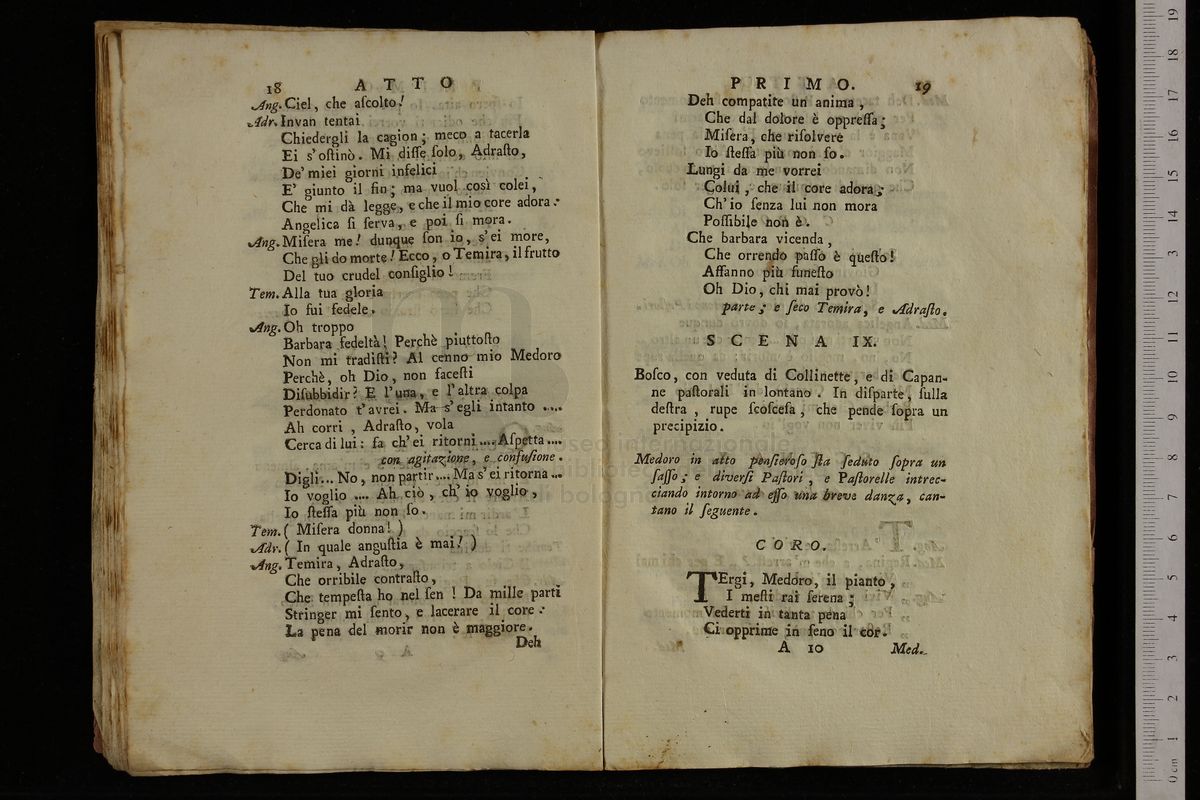 18 ATTO
Ang. Ciel, che aſcolto!
Adr. Invan tentai
Chiedergli la cagion; meco a tacerla
Ei s'oſtinò. Mi diſſe ſolo, Adraſto,
De' miei giorni infelici
E' giunto il fin; ma vuol così colei,
Che mi dà legge, e che il mio core adora:
Angelica ſi ſerva, e poi ſi mora.
Ang. Miſera me! dunque ſon io, s'ei more,
Che gli do morte! Ecco, o Temira, il frutto
Del tuo crudel conſiglio!
Tem. Alla tua gloria
Io fui fedele.
Ang. Oh troppo
Barbara fedeltà! Perchè piuttoſto
Non mi tradiſti? Al cenno mio Medoro
Perchè, oh Dio, non faceſti
Diſubbidir? E l'una, e l'altra colpa
Perdonato t'avrei. Ma s'egli intanto ....
Ah corri, Adraſto, vola
Cerca di lui: fa ch'ei ritorni .... Aſpetta ....
con agitazione, e confuſione.
Digli... No, non partir .... Ma s'ei ritorna ...
Io voglio .... Ah ciò, ch'io voglio,
Io ſteſſa più non ſo.
Tem. ( Miſera donna! )
Adr. ( In quale anguſtia è mai! )
Ang. Temira, Adraſto,
Che orribile contraſto,
Che tempeſta ho nel ſen! Da mille parti
Stringer mi ſento, e lacerare il core:
La pena del morir non è maggiore.
Deh
PRIMO. 19
Deh compatite un anima,
Che dal dolore è oppreſſa;
Miſera, che riſolvere
Io ſteſſa più non ſo.
Lungi da me vorrei
Colui, che il core adora;
Ch'io ſenza lui non mora
Poſſibile non è.
Che barbara vicenda,
Che orrendo paſſo è queſto!
Affanno più funeſto
Oh Dio, chi mai provò!
parte; e ſeco Temira, e Adraſto.
SCENA IX.
Boſco, con veduta di Collinette, e di Capan-
ne paſtorali in lontano. In diſparte, ſulla
deſtra, rupe ſcoſceſa, che pende ſopra un
precipizio.
Medoro in atto penſieroſo ſta ſeduto ſopra un
ſaſſo; e diverſi Paſtori, e Paſtorelle intrec-
ciando intorno ad eſſo una breve danza, can-
tano il ſeguente.
CORO.
TErgi, Medoro, il pianto,
I meſti rai ſerena;
Vederti in tanta pena
Ci opprime in ſeno il cor.
A 10 Med.
0 cm 1 2 3 4 5 6 7 8 9 10 11 12 13 14 15 16 17 18 19